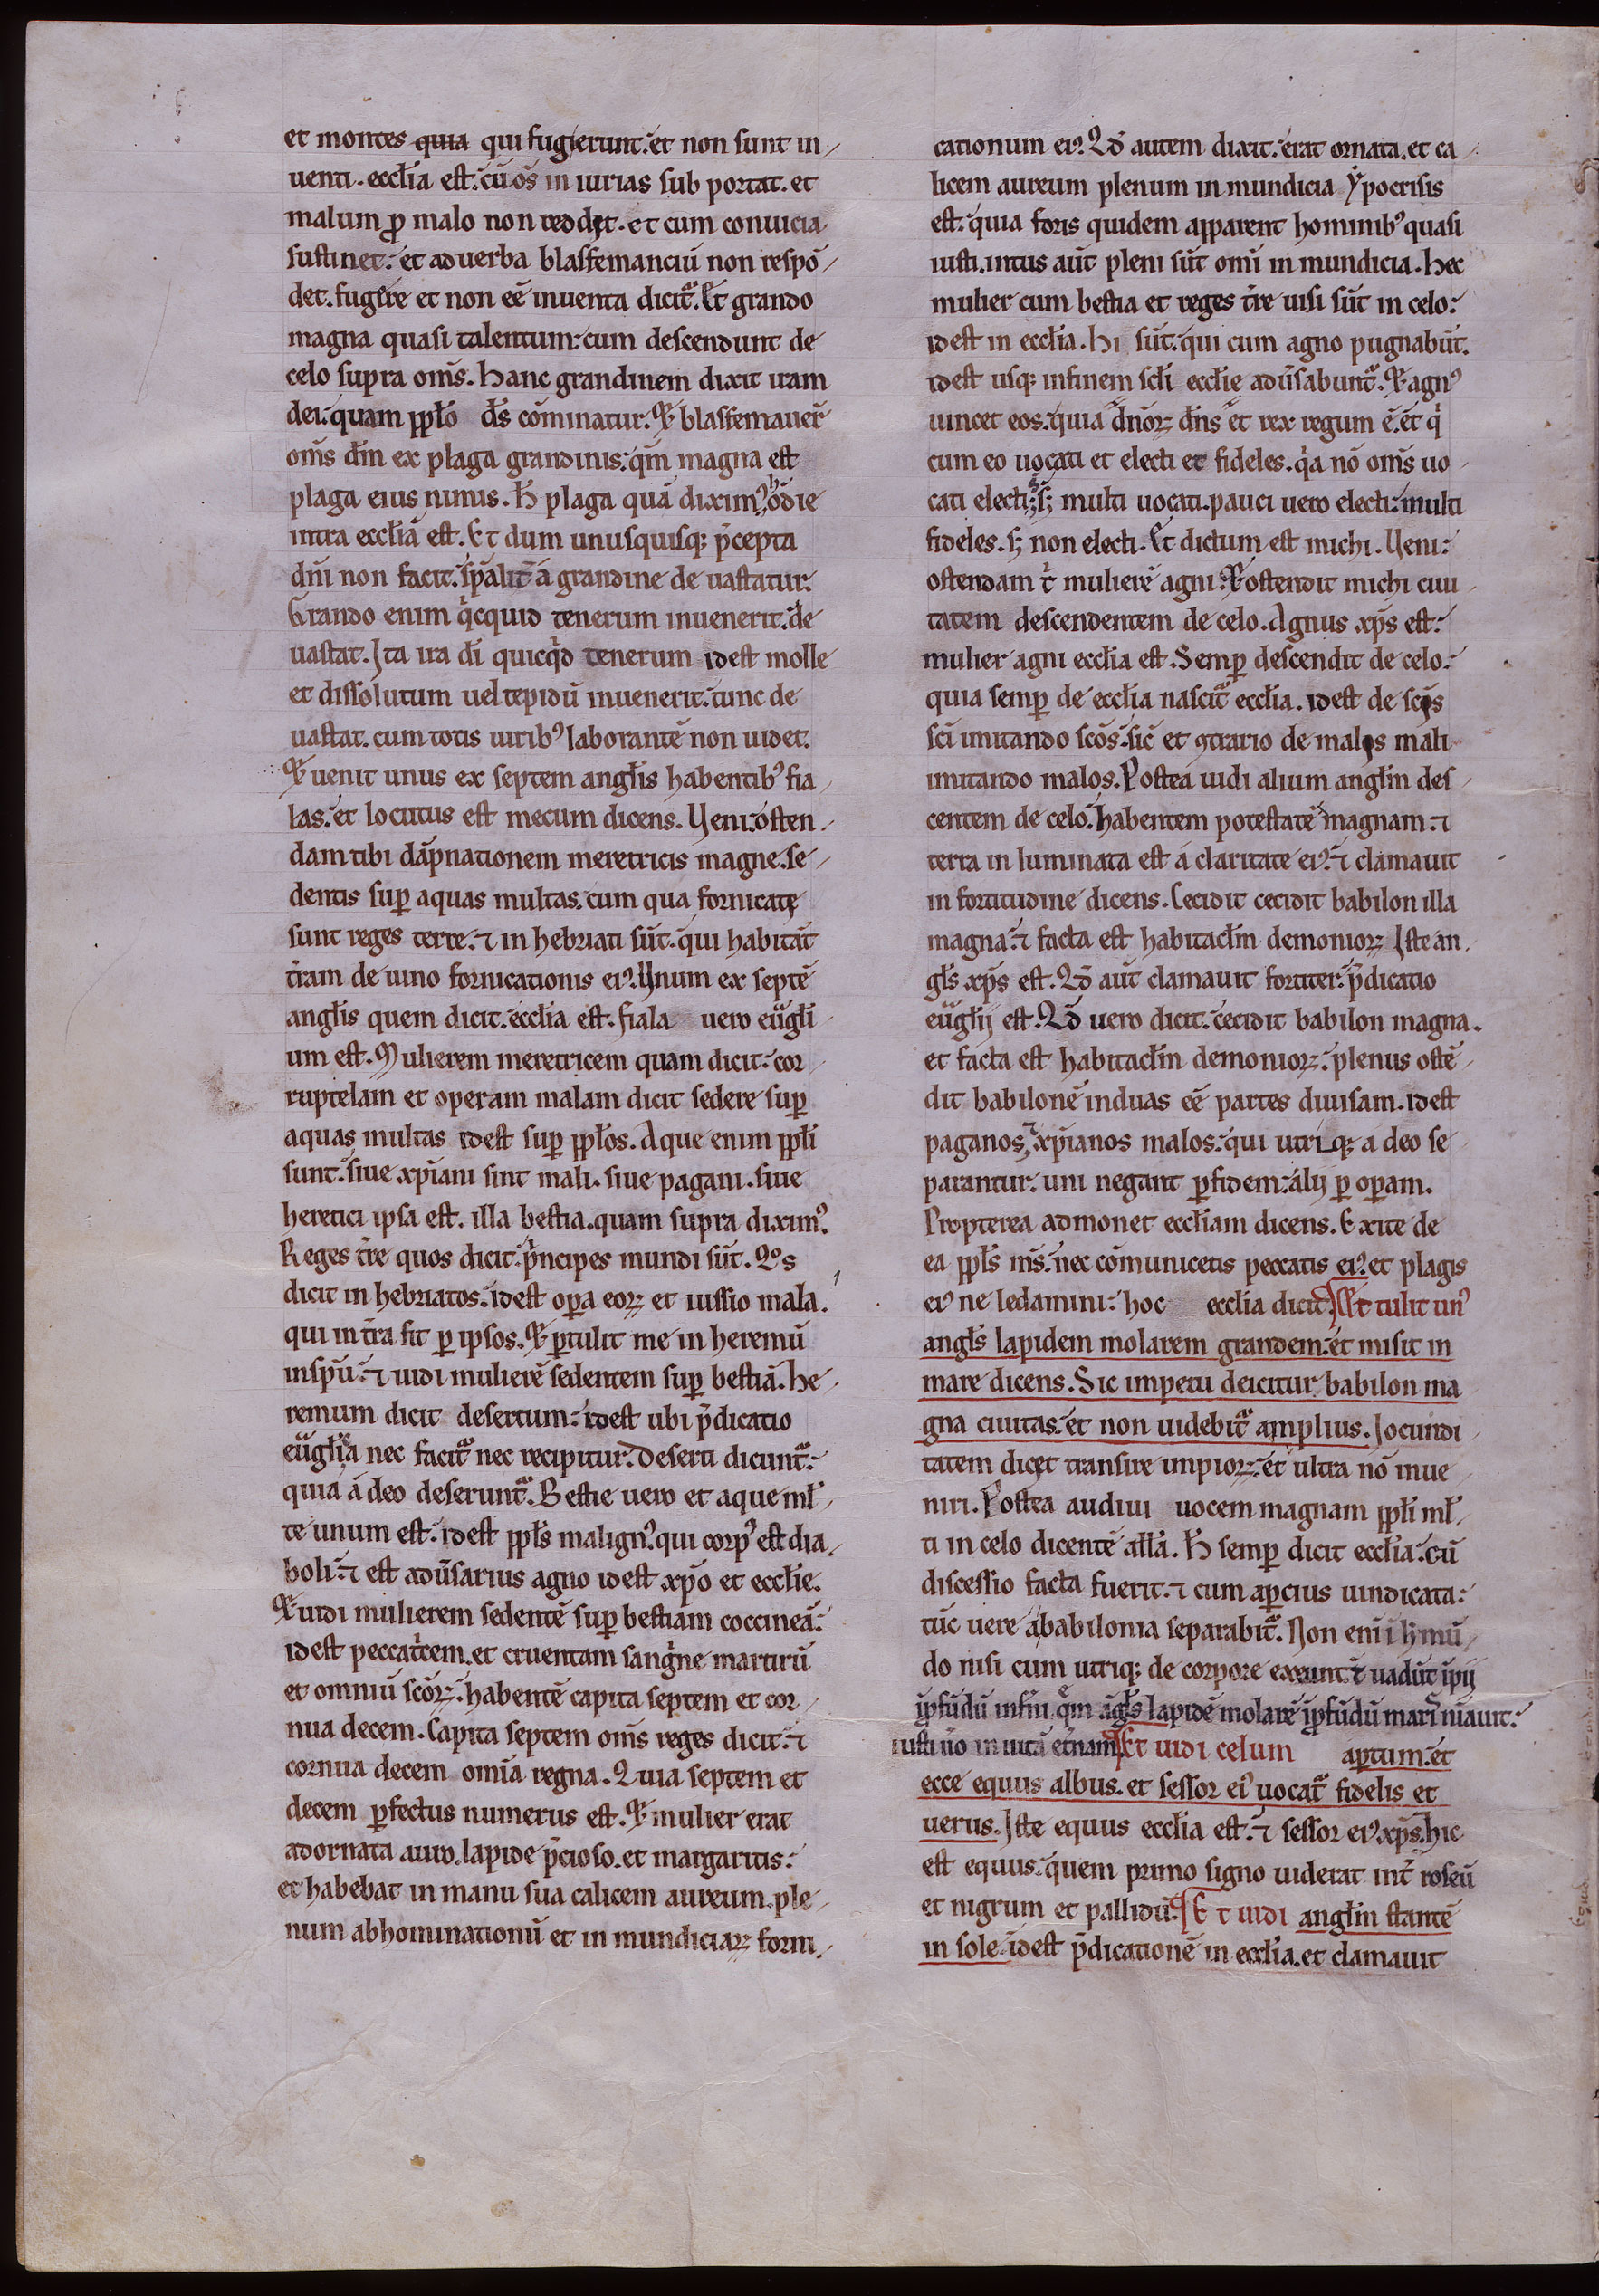 et montes quia qui fugierunt. et non sunt in
uenti. eccłia est. cū oṡ in iurias sub portat. et
malum ꝓ malo non reddet. et cum conuicia
sustinet. et ad uerba blasfemanciū non respō
det. fugere et non eē inuenta dicitᷓ. Et grando
magna quasi talentum. cum descendunt de
celo supra om̄s. Hanc grandinem dixit iram
dei. quam ppło d̄s cōminatur. Et blasfemauer̄
om̄s dm̄ ex plaga grandinis. qm̄ magna est
plaga eius nimis. H̄ plaga quā diximꝰ hodie
intra eccłiā est. Et dum unusquisqꝫ p̄cepta
dn̄i non facit. sp̄alit̄ á grandine de uastatur.
Grando enim qͥcquid tenerum inuenerit. de
uastat. Ita ira dī quicqͥd tenerum idest molle
et dissolutum uel tepidū inuenerit. tunc de
uastat. cum totis uiribꝰ laborantē non uidet.
Et uenit unus ex septem angłis habentibꝰ fia
las. et locutus est mecum dicens. Ueni. osten
dam tibi dāpnationem meretricis magne. se
dentis suꝑ aquas multas. cum qua fornicate
sunt reges terre. ⁊ in hebriati sūt. qui habitāt
t̄ram de uino fornicationis eiꝰ. Unum ex septē
angłis quem dicit. eccłia est. fiala uero euḡłi
um est. Mulierem meretricem quam dicit. cor
ruptelam et operam malam dicit sedere suꝑ
aquas multas idest suꝑ ppłos. Aque enim ppłi
sunt. siue xp̄iani sint mali. siue pagani. siue
heretici ipsa est. illa bestia. quam supra diximꝰ.
Reges t̄re quos dicit. pͥncipes mundi sūt. Qͦs
dicit in hebriatos. idest oꝑa eoꝝ et iussio mala.
qui in t̄ra fit ꝑ ipsos. Et ꝑtulit me in heremū
in sp̄u. ⁊ uidi mulierē sedentem suꝑ bestiā. he
remum dicit desertum. idest ubi p̄dicatio
euḡłica nec facitᷓ nec recipitur. Deserti dicuntᷓ.
quia á deo deseruntᷓ. Bestie uero et aque mł
te unum est. idest ppłs malignꝰ. qui corpꝰ est dia
boli. ⁊ est adūsarius agno idest xp̄o et eccłie.
Et uidi mulierem sedentē suꝑ bestiam coccineā.
idest peccatͥcem. et cruentam sangͥne martirū
et omniū scōꝝ. habentē capita septem et cor
nua decem. Capita septem om̄s reges dicit. ⁊
cornua decem omīa regna. Quia septem et
decem ꝑfectus numerus est. Et mulier erat
adornata auro. lapide p̄cioso. et margaritis.
et habebat in manu sua calicem aureum. ple
num abhominationū et in mundiciaꝝ forni
cationum eiꝰ. Qd̄ autem dixit. erat ornata. et ca
licem aureum plenum in mundicia ẏpocrisis
est. quia foris quidem apparent hominibꝰ quasi
iusti. intus aūt pleni sūt omī in mundicia. hec
mulier cum bestia et reges t̄re uisi sūt in celo.
idest in eccłia. Hi sūt. qui cum agno pugnabūt.
idest usqꝫ in finem scłi eccłie adūsabuntᷓ. Et agnꝰ
uincet eos. quia dn̄oꝝ dn̄s et rex regum ē. et qͥ
cum eo uocati et electi et fideles. qͥa nō om̄s uo
cati electi. sꝫ multi uocati. pauci uero electi. multi
fideles. sꝫ non electi. Et dictum est michi. Ueni.
ostendam tͥ mulierē agni. Et ostendit michi ciui
tatem descendentem de celo. Agnus xp̄s est.
mulier agni eccłia est. Semꝑ descendit de celo.
quia semꝑ de eccłia nascitᷓ eccłia. idest de scīs
scī imitando scōs. sic̄ et ꝯtrario de malis mali
imitando malos. Postea uidi alium angłm des
centem de celo. habentem potestatē magnam. ⁊
terra in luminata est á claritate eiꝰ. ⁊ clamauit
in fortitudine dicens. Cecidit cecidit babilon illa
magna. ⁊ facta est habitacłm demonioꝝ Iste an
głs xp̄s est. Qd̄ aūt clamauit fortiter. p̄dicatio
euḡłij est. Qd̄ uero dicit. cecidit babilon magna.
et facta est habitacłm demonioꝝ. plenus ostē
dit babilonē in duas eē partes diuisam. idest
paganos ⁊ xp̄ianos malos. qui utriqꝫ a deo se
parantur. uni negant ꝑ fidem. alij ꝑ oꝑam.
Propterea admonet eccłiam dicens. Exite de
ea ppłs m̄s. nec cōmunicetis peccatis eiꝰ. et plagis
eiꝰ ne ledamini. hoc eccłia dicit. Et tulit unꝰ
angłs lapidem molarem grandem. et misit in
mare dicens. Sic impetu deicitur babilon ma
gna ciuitas. et non uidebitᷓ amplius. Iocundi
tatem dicet transire impioꝝ. et ultra nō inue
niri. Postea audiui uocem magnam ppłi mł
ti in celo dicentē ałłā. H̄ semꝑ dicit eccłia. cū
discessio facta fuerit. ⁊ cum aꝑcius uindicata.
tūc uere á babilonia separabitᷓ. Non enī i h̄ mū
do nisi cum utriqꝫ de corpore exeunt. ⁊ uadūt īpij
ī ꝓfūdū infni. qm̄ āgłs lapidē molarē ī ꝓfūdū mari
iusti ūo in uitā et̄nam. Et uidi celum aꝑtum. et
ecce equus albus. et sessor eiꝰ uocatᷓ fidelis et
uerus. Iste equus eccłia est. ⁊ sessor eiꝰ xp̄s. hic
est equus. quem primo signo uiderat int̄ roseū
et nigrum et pallidū. Et uidi angłm stantē
in sole. idest p̄dicationē in eccłia. et clamauit